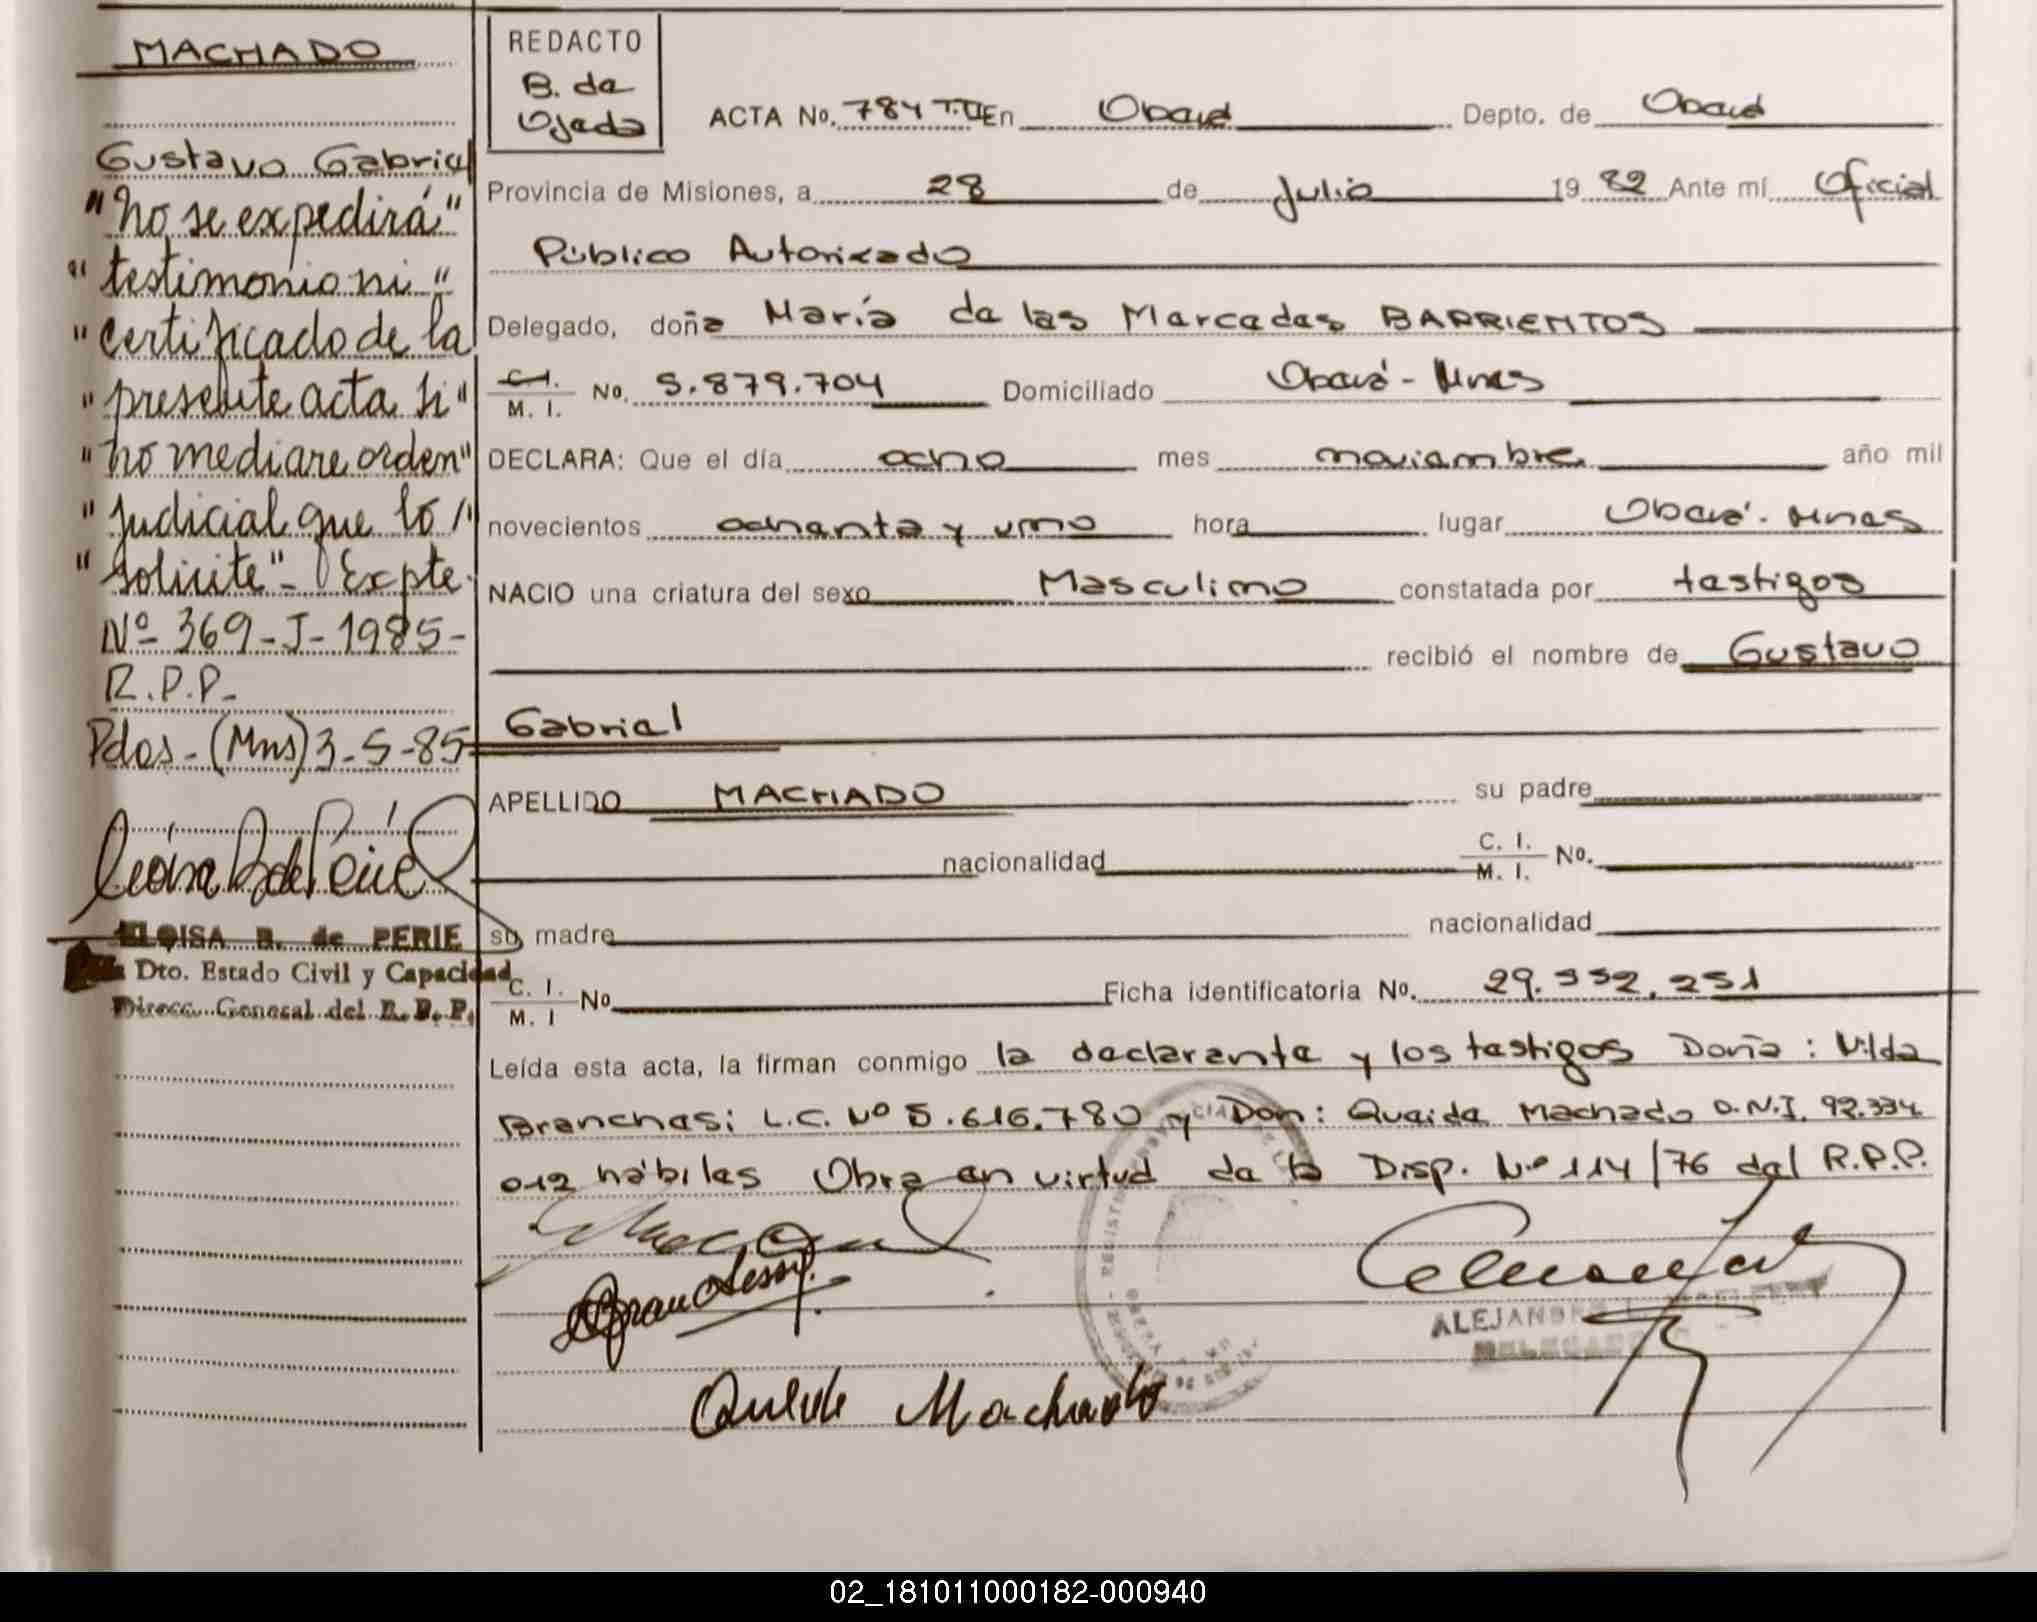 MACHADO
Gustavo Gabriel
"no se expedirá"
"testimonio ni"
"certificado de la
"presente acta si"
"no mediare orden"
"judicial que lo"
"solicite"- Expte.
Nº 369-J-1985-
R.P.P.-
Pdas-(Mns)3-5-85
ELOISA B. de PERIE
Dto. Estado Civil y Capacidad
Direcc. General del R. P. P.
REDACTO
B. de
Ojeda
ACTA No. 784 T.II En Oberá Depto. de Oberá
Provincia de Misiones, a 28 de Julio 19 82 Ante mí Oficial
Público Autorizado
Delegado, doña María de las Mercedes BARRIENTOS
C.I. M. I. No. 5.879.704 Domiciliado Oberá - Mnes
DECLARA: Que el día ocho mes noviembre año mil
novecientos ochenta y uno hora lugar Oberá - Mnes
NACIO una criatura del sexo Masculino constatada por testigos
recibió el nombre de Gustavo
Gabriel
APELLIDO MACHADO su padre
nacionalidad C. I. M. I. No.
su madre nacionalidad
C. I. M. I No Ficha identificatoria No. 29.332.251
Leída esta acta, la firman conmigo la declarante y los testigos Doña: Nilda
Branchesi L.C. Nº 5.616.780 y Don: Queide Machado D.N.I. 92.334
012 hábiles Obra en virtud de la Disp. Nº 114/76 del R.P.P.
Branchessi
Queide Machado
ALEJANDRO
DELEGADO
02_181011000182-000940